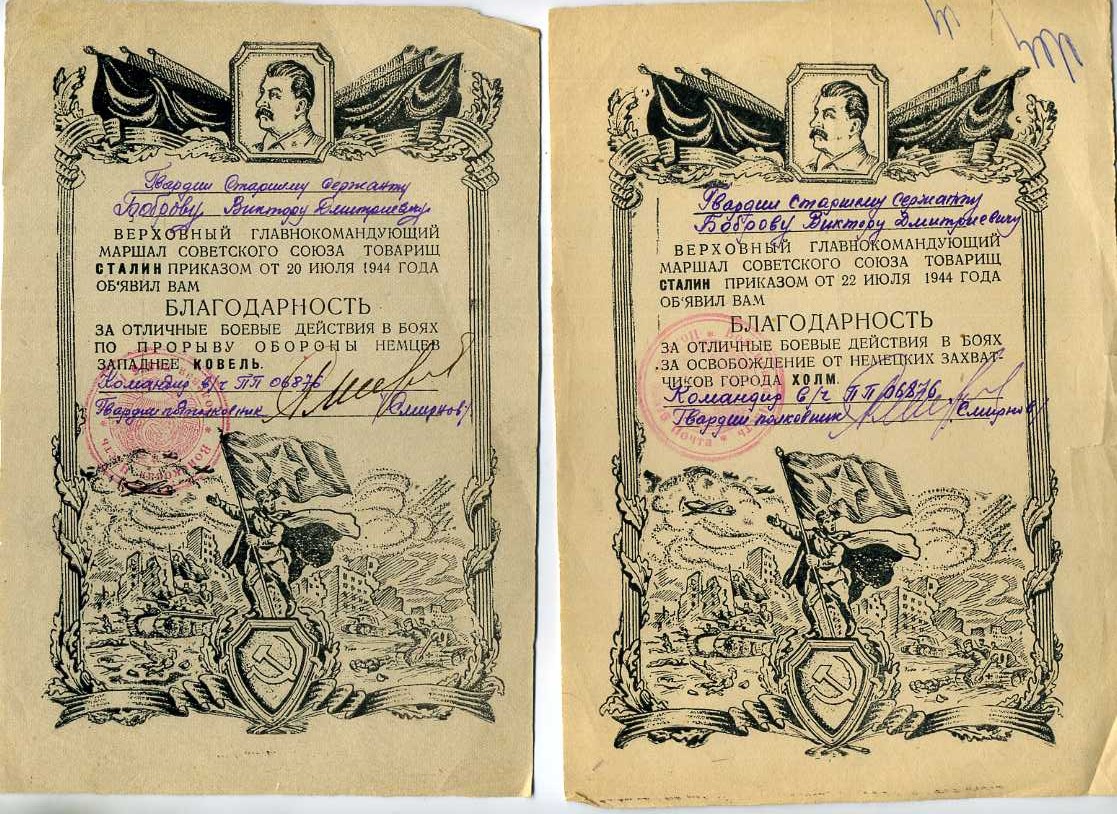 Гвардии Старшему Сержанту
Боброву Виктору Дмитриевичу
ВЕРХОВНЫЙ ГЛАВНОКОМАНДУЮЩИЙ
МАРШАЛ СОВЕТСКОГО СОЮЗА ТОВАРИЩ
СТАЛИН ПРИКАЗОМ ОТ 20 ИЮЛЯ 1944 ГОДА
ОБ'ЯВИЛ ВАМ
БЛАГОДАРНОСТЬ
ЗА ОТЛИЧНЫЕ БОЕВЫЕ ДЕЙСТВИЯ В БОЯХ
ПО ПРОРЫВУ ОБОРОНЫ НЕМЦЕВ
ЗАПАДНЕЕ КОВЕЛЬ.
Командир в/ч ПП 06876
Гвардии полковник (Смирнов)
Гвардии Старшему Сержанту
Боброву Виктору Дмитриевичу
ВЕРХОВНЫЙ ГЛАВНОКОМАНДУЮЩИЙ
МАРШАЛ СОВЕТСКОГО СОЮЗА ТОВАРИЩ
СТАЛИН ПРИКАЗОМ ОТ 22 ИЮЛЯ 1944 ГОДА
ОБ'ЯВИЛ ВАМ
БЛАГОДАРНОСТЬ
ЗА ОТЛИЧНЫЕ БОЕВЫЕ ДЕЙСТВИЯ В БОЯХ
ЗА ОСВОБОЖДЕНИЕ ОТ НЕМЕЦКИХ ЗАХВАТ-
ЧИКОВ ГОРОДА ХОЛМ.
Командир в/ч ПП 06876.
Гвардии полковник (Смирнов)